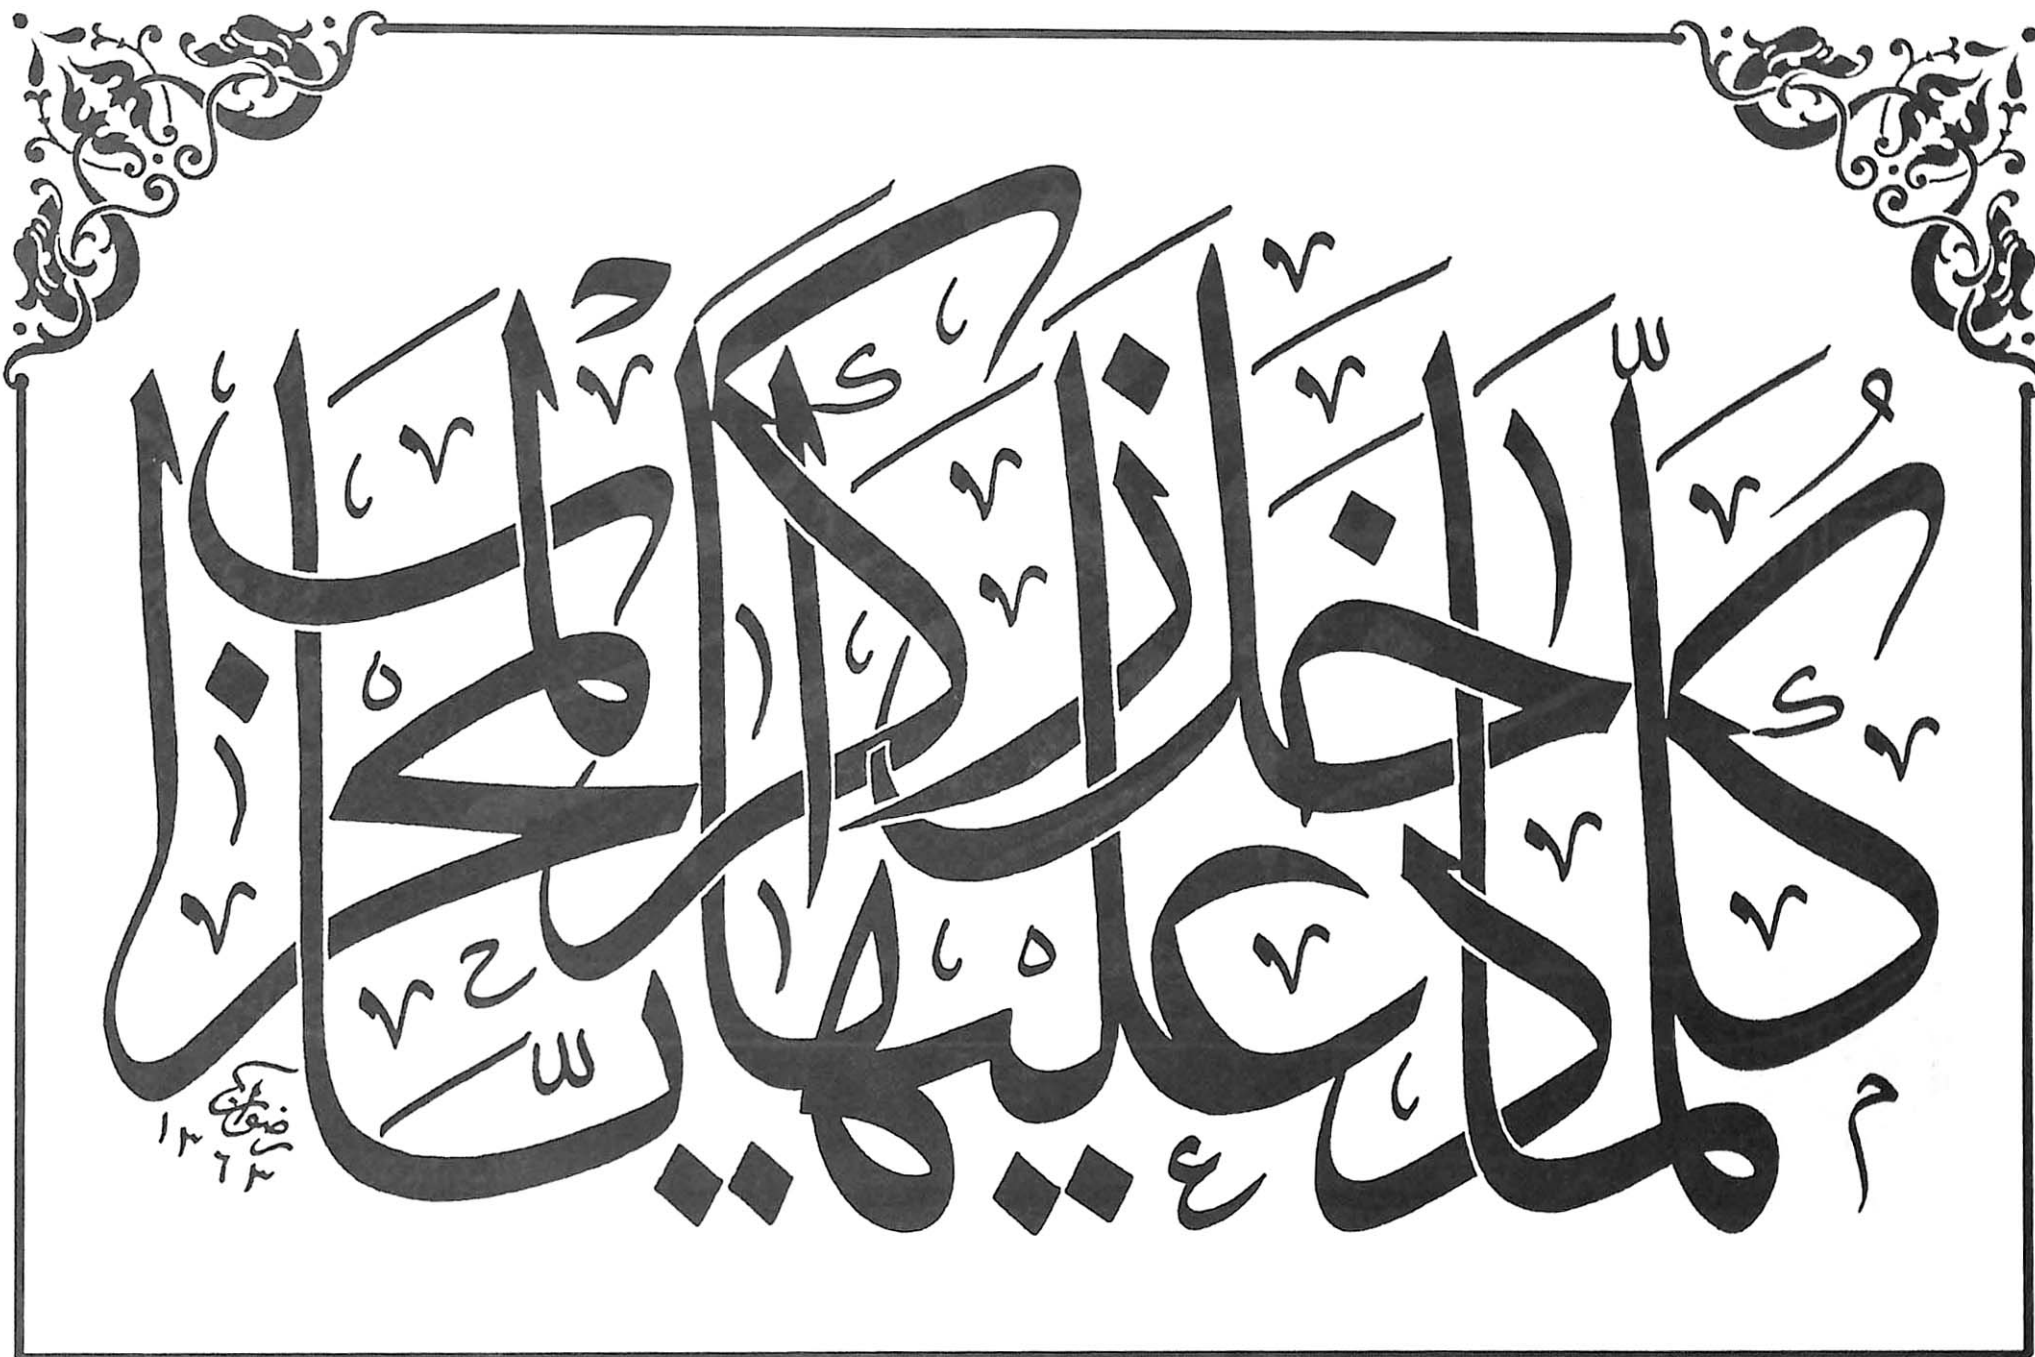 كُلَّمَا دَخَلَ عَلَيْهَا زَكَرِيَّا الْمِحْرَابَ
١٣٦٣